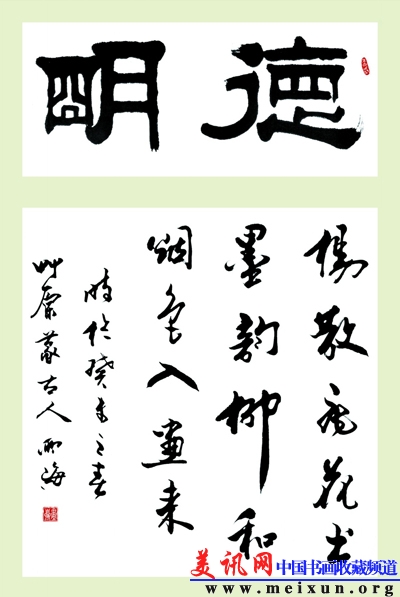 德明
楊散飛花书
墨韵柳和
烟色入畫来
时於癸未之春
艸原蒙古人海
美讯网 中国书画收藏频道
www.meixun.org